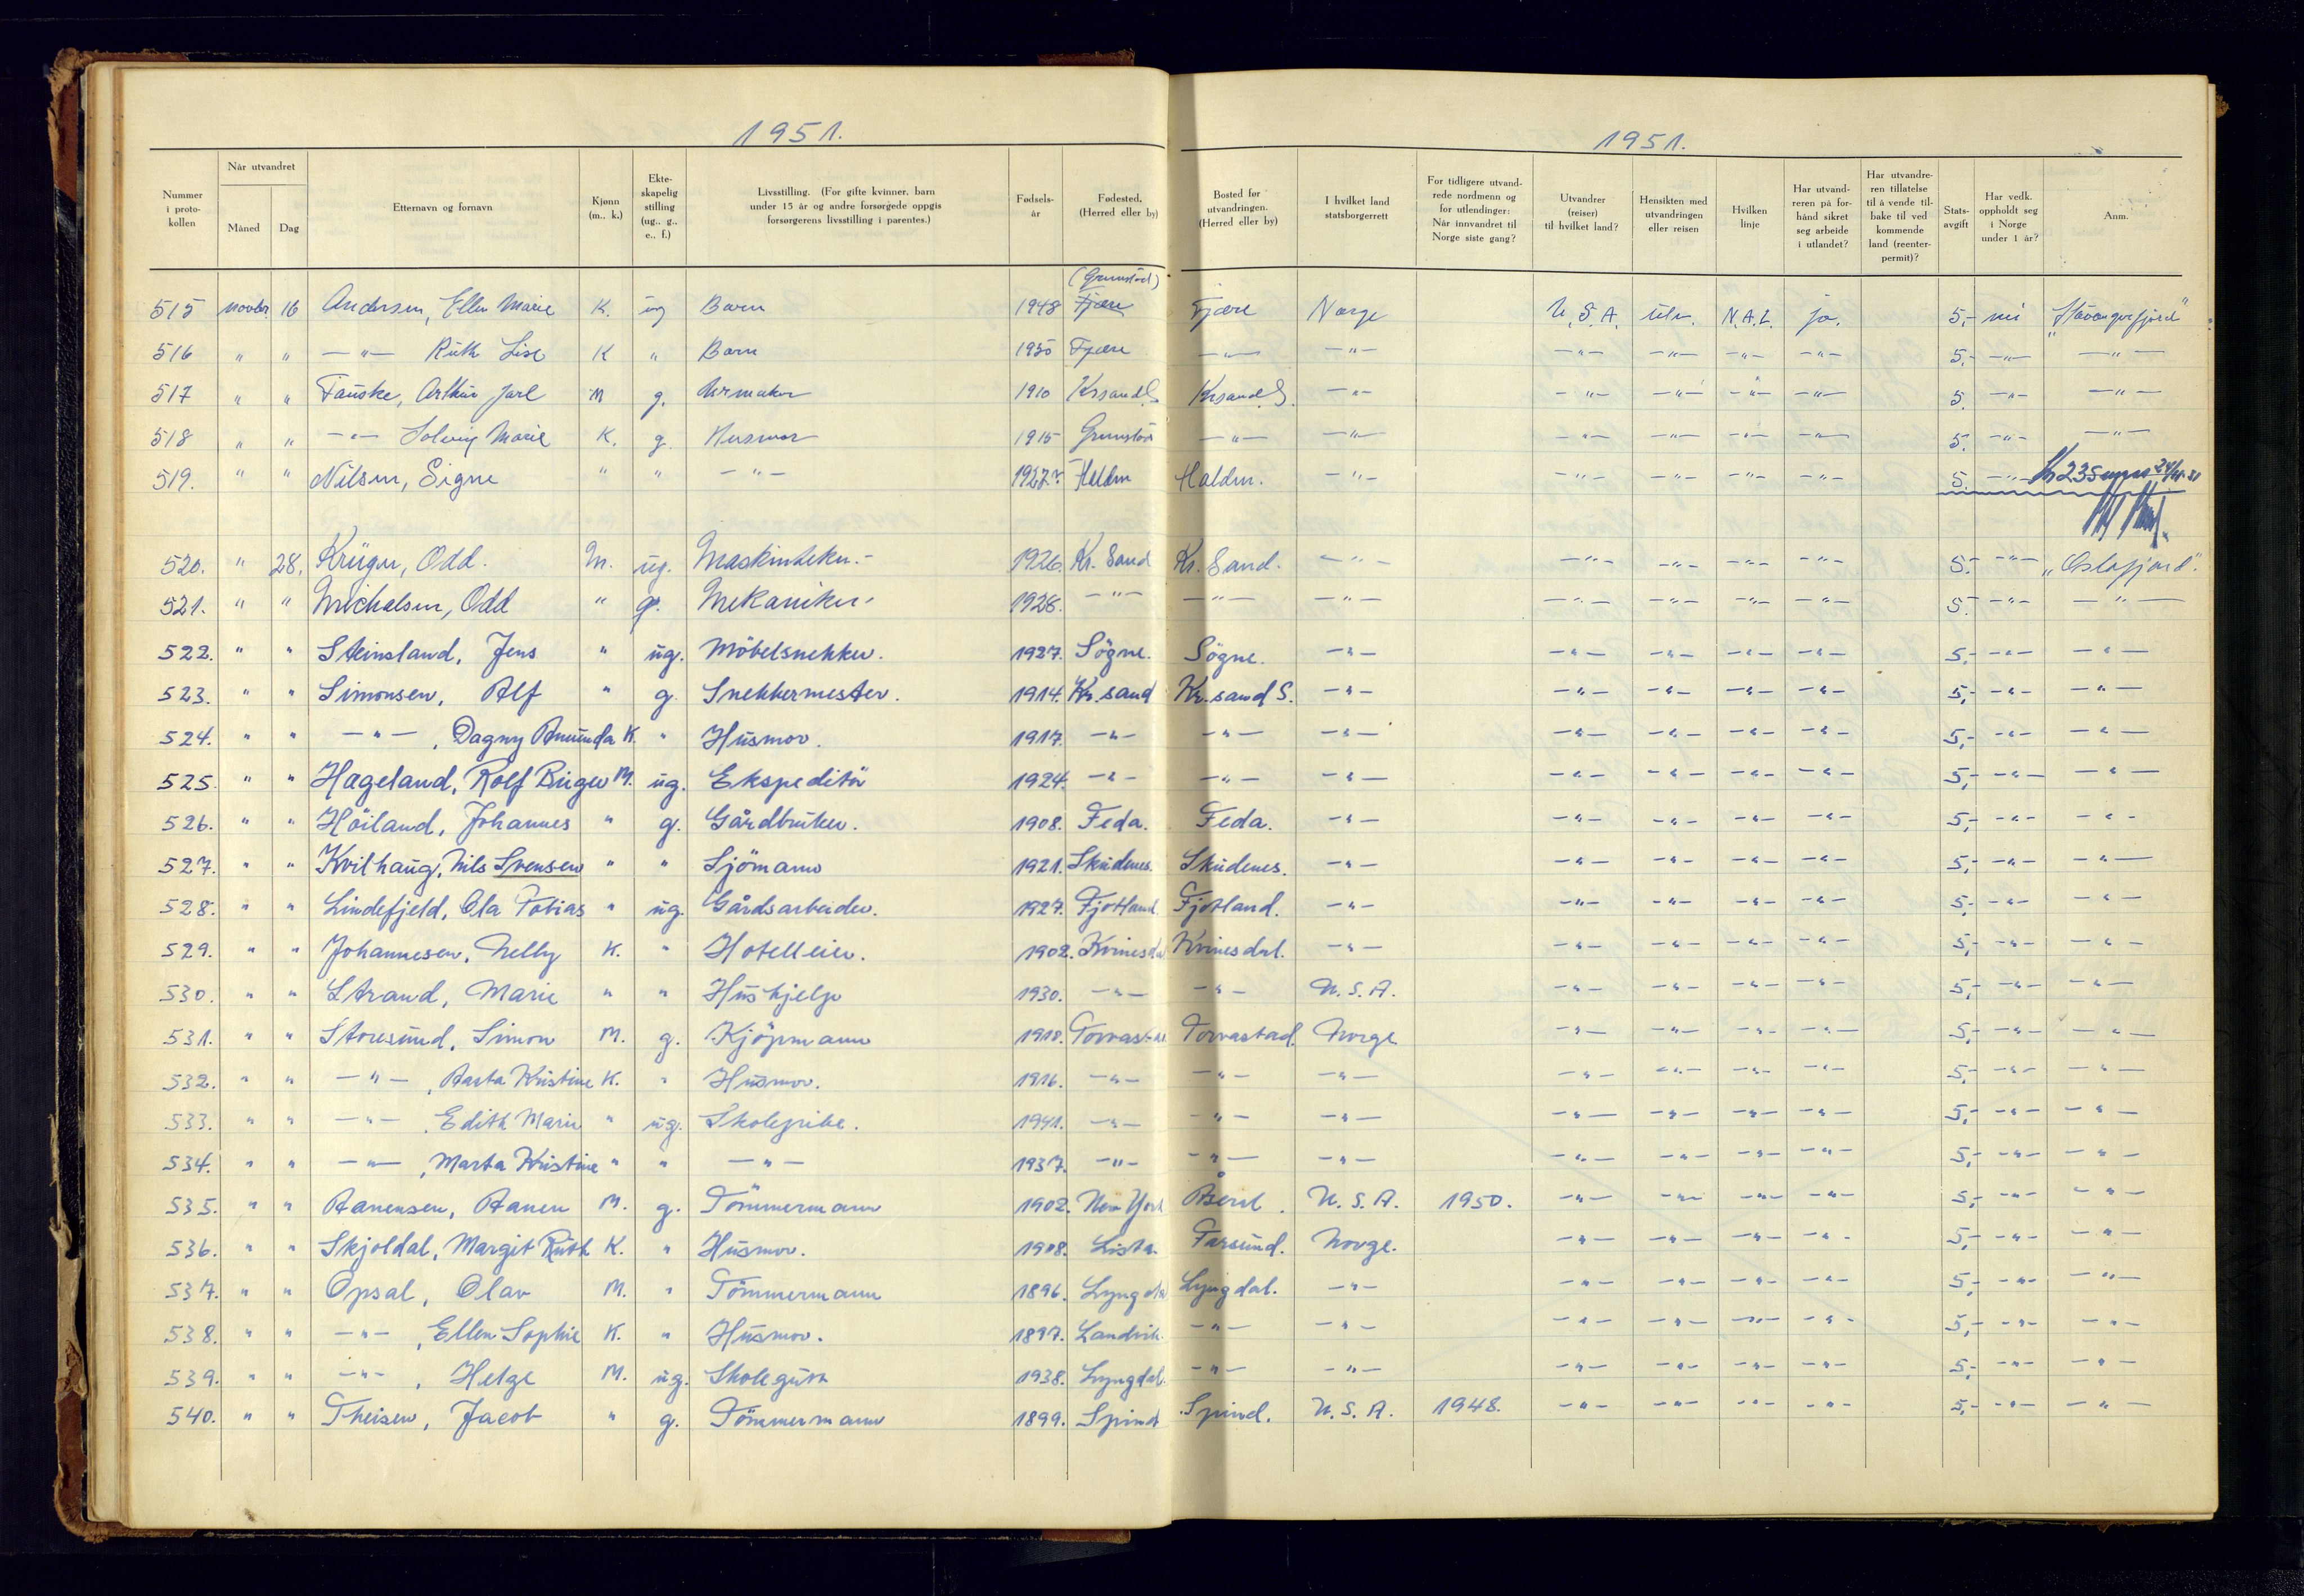 1951.
1951.
Nummer i proto-kollen | Når utvandret Måned | Dag | Etternavn og fornavn | Kjønn (m., k.) | Ekte-skapelig stilling (ug., g., e., f.) | Livsstilling. (For gifte kvinner, barn under 15 år og andre forsørgede oppgis forsørgerens livsstilling i parentes.) | Fødsels-år | Fødested. (Herred eller by) | Bosted før utvandringen. (Herred eller by) | I hvilket land statsborgerrett | For tidligere utvand-rede nordmenn og for utlendinger: Når innvandret til Norge siste gang? | Utvandrer (reiser) til hvilket land? | Hensikten med utvandringen eller reisen | Hvilken linje | Har utvand-reren på for-hånd sikret seg arbeide i utlandet? | Har utvandre-ren tillatelse til å vende til-bake til ved kommende land (reenter-permit)? | Stats-avgift | Har vedk. oppholdt seg i Norge under 1 år? | Anm.
(Grimstad)
515 novbr. 16 Andersen, Ellen Marie K. ug Barn 1948 Fjære Fjære Norge U.S.A. utv. N.A.L. ja. 5,- nei "Stavangerfjord"
516 " " —"— Ruth Lise K " Barn 1950 Fjære —"— —"— —"— —"— —"— —"— 5,- —"— —"—
517 " " Fauske, Arthur Jarl M g. Urmaker 1910 Krsand S Krsand S. —"— —"— —"— —"— —"— 5. —"— —"—
518 " " —"— Solveig Marie K. g. Husmor 1915 Grimstad —"— —"— —"— —"— —"— —"— 5. —"— —"—
519. " " Nilsen, Signe " " —"— 1927 Halden Halden. —"— —"— —"— —"— —"— 5. —"— Kr 235
520. " 28. Krüger, Odd. M. ug. Maskintekn.- 1926. Kr. Sand Kr. Sand. —"— —"— —"— —"— —"— 5.- —"— "Oslofjord".
521. " " Michalsen, Odd " g. Mekaniker- 1928. —"— —"— —"— —"— —"— —"— —"— 5.- —"— —"—
522. " " Steinsland, Jens " ug. Möbelsnekker. 1927. Sögne. Sögne. —"— —"— —"— —"— —"— 5,- —"— —"—
523. " " Simonsen, Alf " g. Snekkermester. 1914. Kr.sand Kr.sand S. —"— —"— —"— —"— —"— 5,- —"— —"—
524. " " —"—, Dagny Amunda K. " Husmor. 1917. —"— —"— —"— —"— —"— —"— —"— 5,- —"— —"—
525. " " Hageland, Rolf Birger M. ug. Ekspeditör 1924. —"— —"— —"— —"— —"— —"— —"— 5,- —"— —"—
526. " " Höiland, Johannes " g. Gårdbruker. 1908. Feda. Feda. —"— —"— —"— —"— —"— 5,- —"— —"—
527. " " Kvilhaug, Nils Svensen " " Sjömann 1921. Skudenes. Skudenes. —"— —"— —"— —"— —"— 5,- —"— —"—
528. " " Lindefjeld, Ola Tobias " ug. Gårdsarbeider. 1927. Fjotland Fjotland. —"— —"— —"— —"— —"— 5,- —"— —"—
529. " " Johannesen, Nelly K. " Hotelleier. 1902. Kvinesdal Kvinesdal. —"— —"— —"— —"— —"— 5,- —"— —"—
530. " " Strand, Marie " " Hushjelp 1930. —"— —"— U.S.A. —"— —"— —"— —"— 5,- —"— —"—
531. " " Storesund, Simon M. g. Kjöpmann 1910. Torvastad Torvastad. Norge —"— —"— —"— —"— 5,- —"— —"—
532. " " —"—, Aasta Kristine K. " Husmor. 1916. —"— —"— —"— —"— —"— —"— —"— 5,- —"— —"—
533. " " —"—, Edith Marie " ug. Skolepike. 1941. —"— —"— —"— —"— —"— —"— —"— 5,- —"— —"—
534. " " —"—, Marta Kristine " " —"— 1937. —"— —"— —"— —"— —"— —"— —"— 5,- —"— —"—
535. " " Aanensen, Aanen M. g. Tömmermann 1902. New York Åseral. U.S.A. 1950. —"— —"— —"— —"— 5,- —"— —"—
536. " " Skjoldal, Margit Ruth K. " Husmor. 1908. Lista. Farsund. Norge. —"— —"— —"— —"— 5,- —"— —"—
537. " " Opsal, Olav M. " Tömmermann 1896. Lyngdal Lyngdal. —"— —"— —"— —"— —"— 5,- —"— —"—
538. " " —"—, Ellen Sophie K. " Husmor. 1897. Landvik. —"— —"— —"— —"— —"— —"— 5,- —"— —"—
539. " " —"—, Helge M. ug. Skolegutt 1938. Lyngdal. —"— —"— —"— —"— —"— —"— 5,- —"— —"—
540. " " Theisen, Jacob " g. Tömmermann 1899. Spind Spind. U.S.A. 1948. —"— —"— —"— —"— 5,- —"— —"—